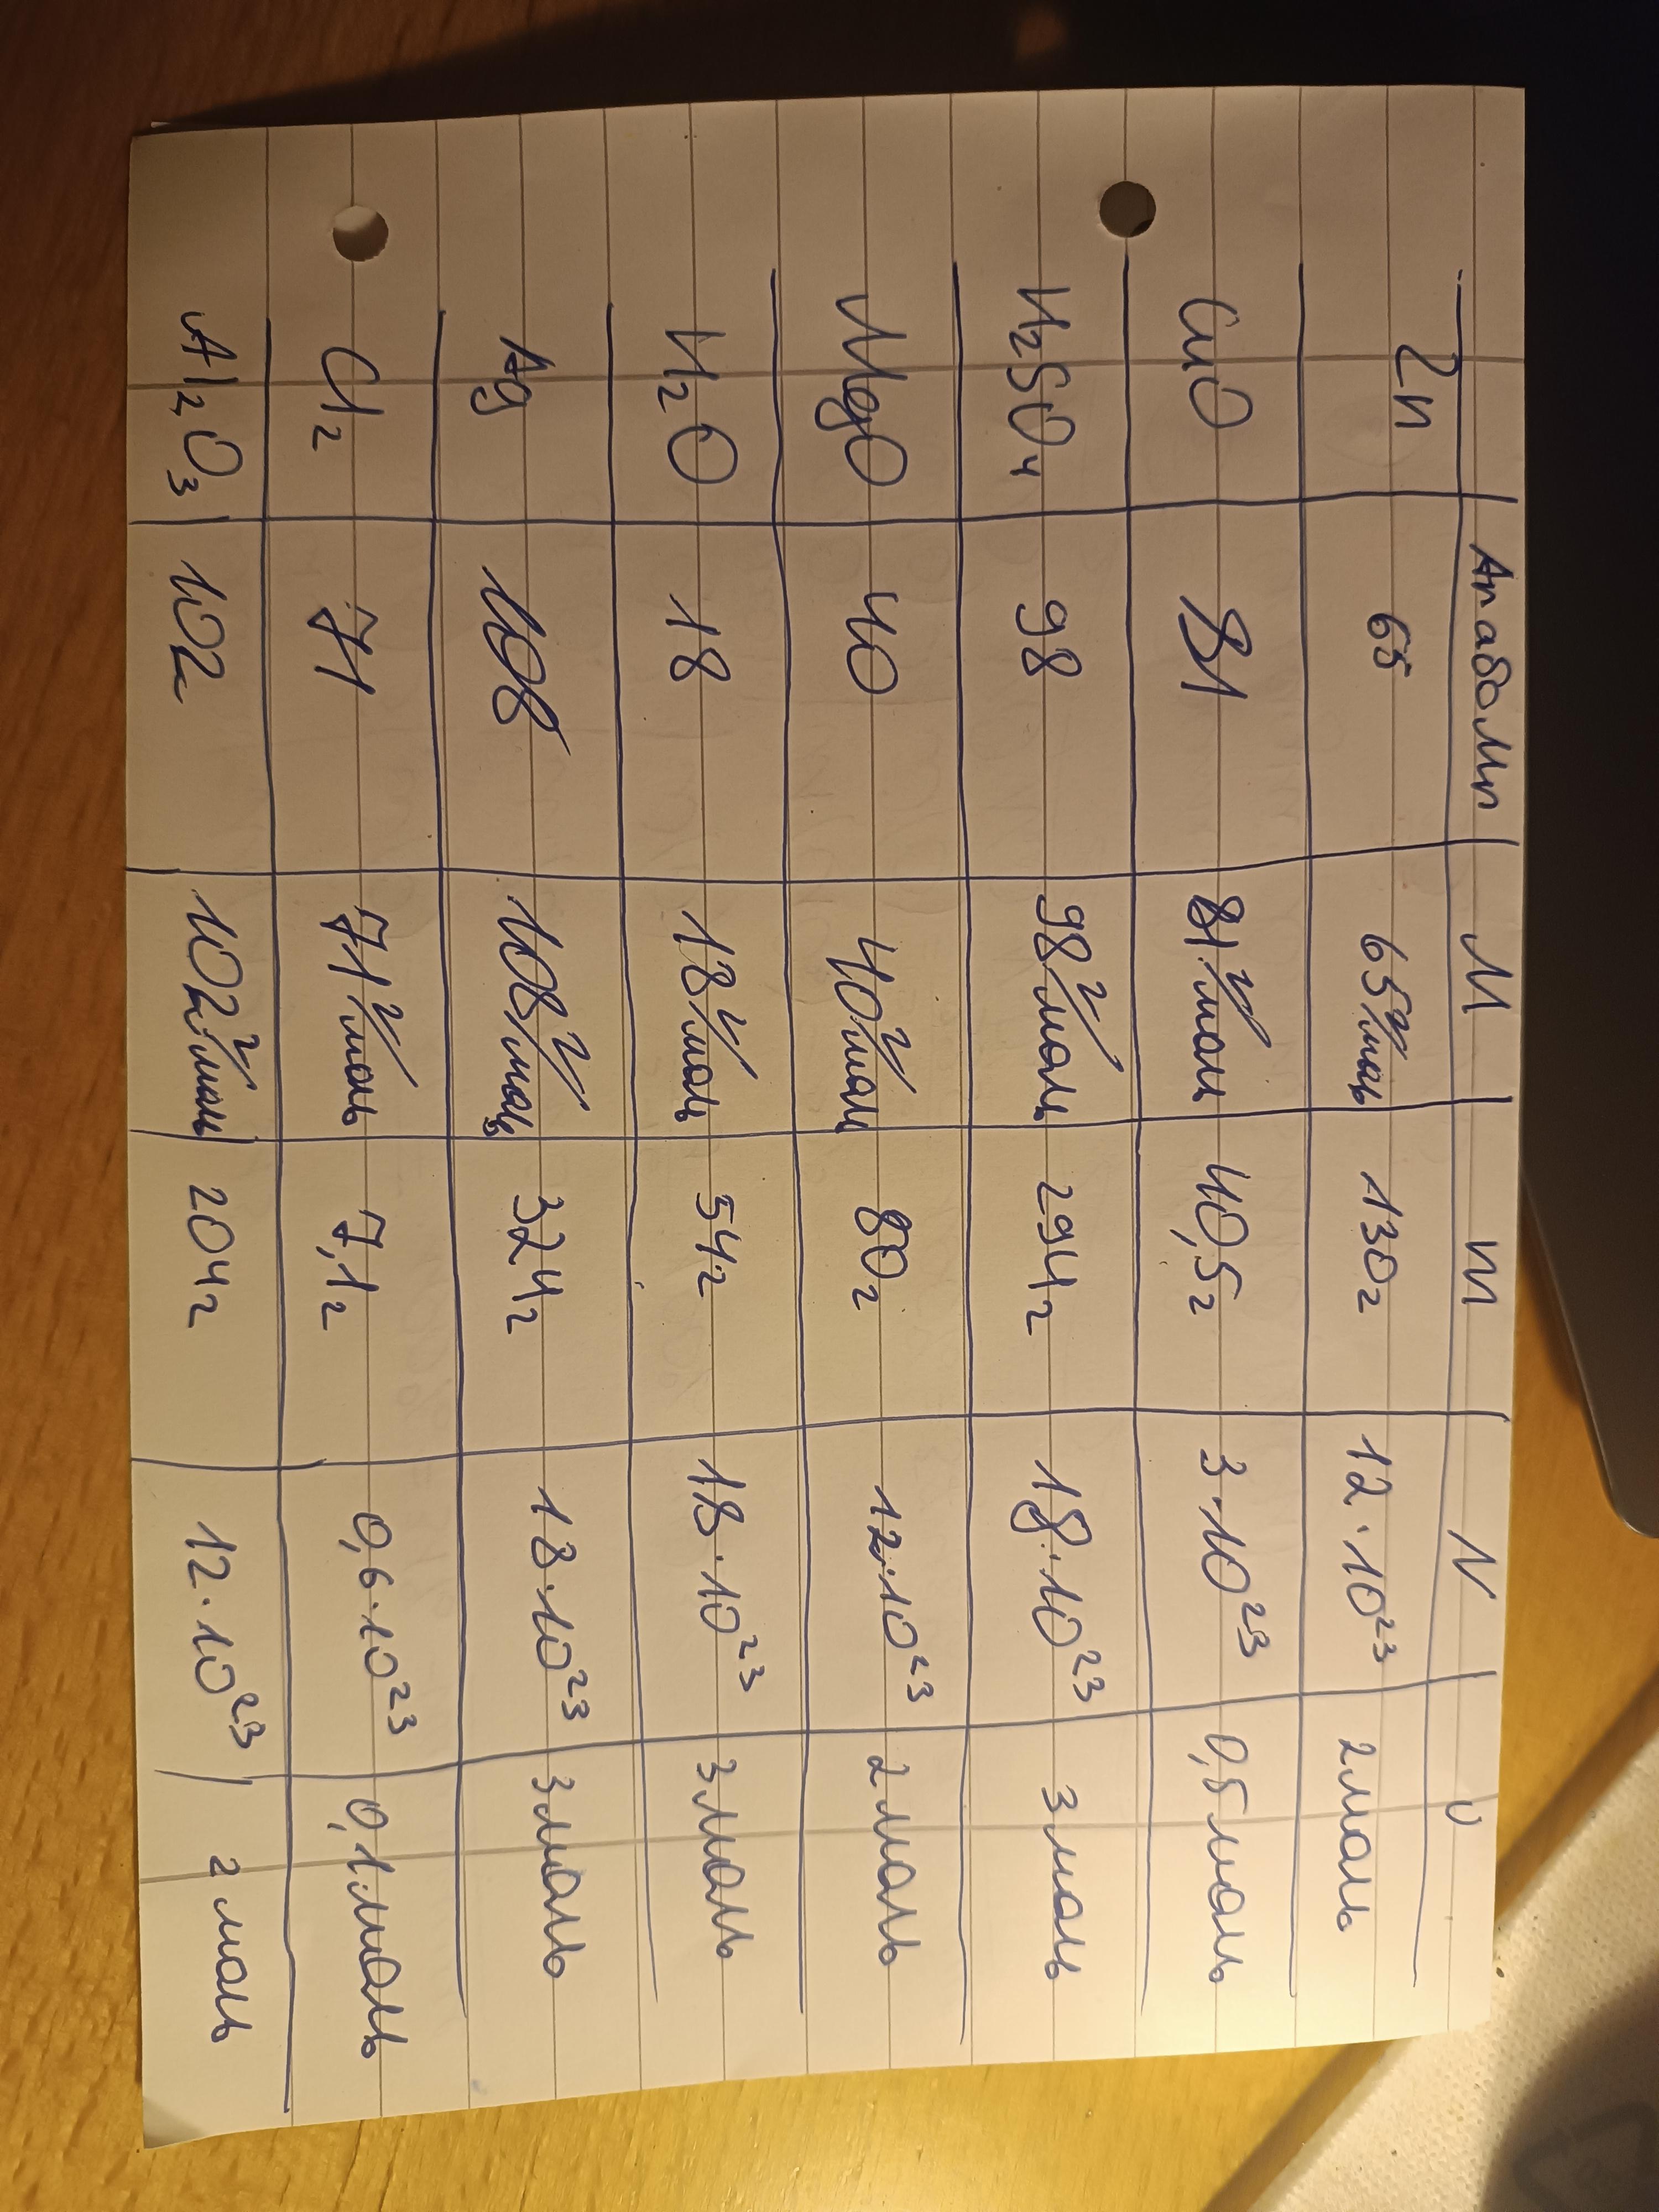 Ar або Mr M m N υ
Zn 65 65 г/моль 130 г 12 · 10²³ 2 моль
CuO 81 81 г/моль 40,5 г 3 · 10²³ 0,5 моль
H₂SO₄ 98 98 г/моль 294 г 18 · 10²³ 3 моль
MgO 40 40 г/моль 80 г 12 · 10²³ 2 моль
H₂O 18 18 г/моль 54 г 18 · 10²³ 3 моль
Ag 108 108 г/моль 324 г 18 · 10²³ 3 моль
Cl₂ 71 71 г/моль 7,1 г 0,6 · 10²³ 0,1 моль
Al₂O₃ 102 102 г/моль 204 г 12 · 10²³ 2 моль